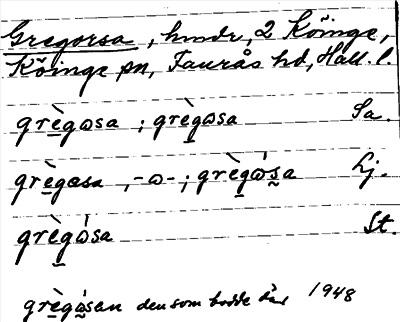 Gregorsa, hmdr, 2 Köinge,
Köinge sn, Faurås hd, Hall. l.
grègɷsa ; grègɷsa Sa.
grègɷsa, -ɷ- ; grègɷ́sa Lj.
grègɷ́sa St.
grègɷ́san den som bodde där 1948